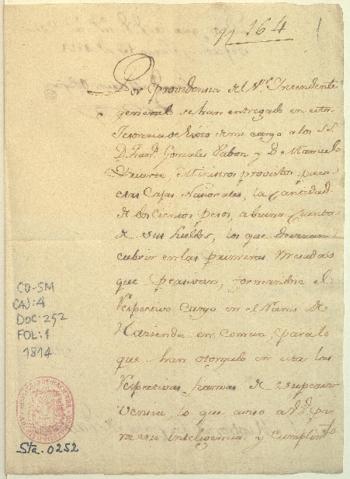 nº 164
Por providencia del Sr. Intendente
general se han entregado en esta
Tesoreria de Exto de mi cargo a los SS.
D. Franco. Gonzales Pabon y D. Manuel
Ministros provistos para
esas Cajas Nacionales, la cantidad
de doscientos pesos, a buena cuenta
de sus sueldos, los que deveran
cubrir en las primeras Mesadas
que, formandose el
respectivo cargo en el Ramo de
Hazienda en comun, para lo
que han otorgado en esta las
respectivas
lo que aviso a VV. pa
ra su inteligencia y cumplimto
CO-SM
CAJ: 4
DOC: 252
FOL: 1
1814
Sta. 0252